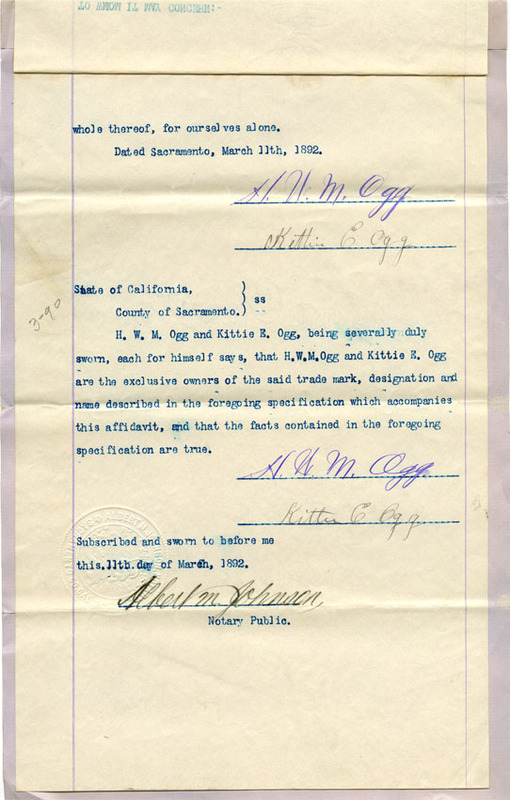 TO WHOM IT MAY CONCERN:-
whole thereof, for ourselves alone.
Dated Sacramento, March 11th, 1892.
H. W. M. Ogg
Kittie E Ogg
State of California,
ss
County of Sacramento.
3-90
H. W. M. Ogg and Kittie E. Ogg, being severally duly
sworn, each for himself says, that H.W.M.Ogg and Kittie E. Ogg
are the exclusive owners of the said trade mark, designation and
name described in the foregoing specification which accompanies
this affidavit, and that the facts contained in the foregoing
specification are true.
H. W. M. Ogg
Kittie E Ogg
Subscribed and sworn to before me
this.11th.day of March, 1892.
Albert M. Johnson
Notary Public.